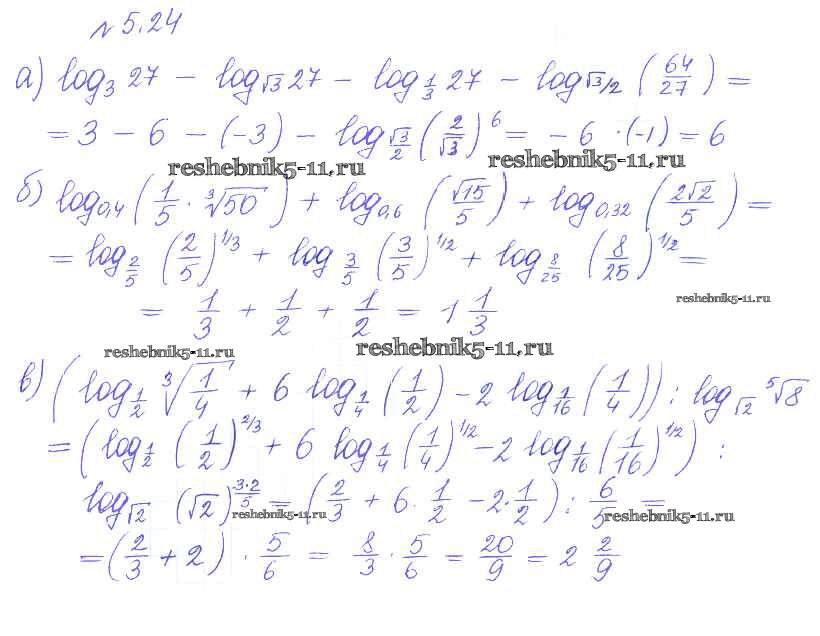 № 5.24
а) log₃ 27 − log_√3 27 − log_1/3 27 − log_√3/2 (64/27) =
= 3 − 6 − (−3) − log_√3/2 (2/√3)⁶ = −6 · (−1) = 6
reshebnik5-11.ru reshebnik5-11.ru
б) log_0,4 (1/5 · ³√50) + log_0,6 (√15/5) + log_0,32 (2√2/5) =
= log_2/5 (2/5)^1/3 + log_3/5 (3/5)^1/2 + log_8/25 (8/25)^1/2 =
= 1/3 + 1/2 + 1/2 = 1 1/3
reshebnik5-11.ru
reshebnik5-11.ru reshebnik5-11.ru
в) (log_1/2 ³√(1/4) + 6 log_1/4 (1/2) − 2 log_1/16 (1/4)) : log_√2 ⁵√8
= (log_1/2 (1/2)^2/3 + 6 log_1/4 (1/4)^1/2 − 2 log_1/16 (1/16)^1/2) :
log_√2 (√2)^3·2/5 = (2/3 + 6 · 1/2 − 2 · 1/2) : 6/5 =
reshebnik5-11.ru reshebnik5-11.ru
= (2/3 + 2) · 5/6 = 8/3 · 5/6 = 20/9 = 2 2/9